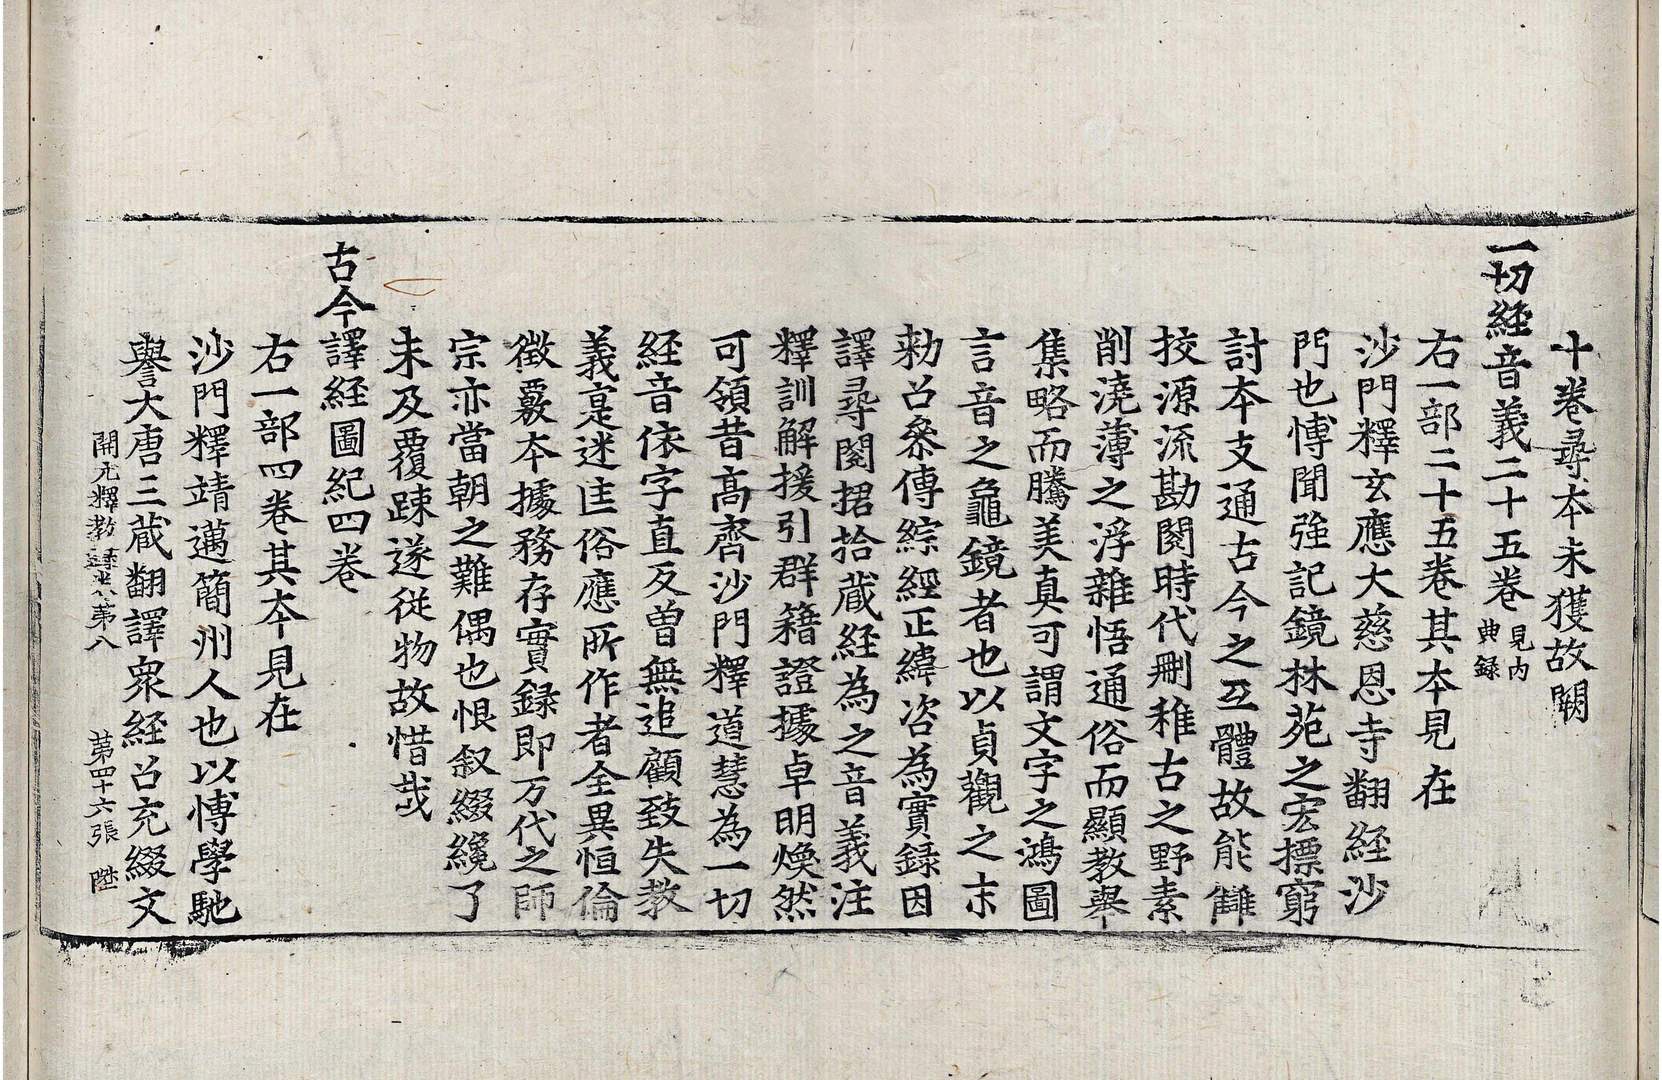 十卷尋本未獲故闕
一切經音義二十五卷 見內典録
右一部二十五卷其本見在
沙門釋玄應大慈恩寺翻經沙
門也博聞強記鏡林苑之宏摽窮
討本支通古今之互體故能讎
挍源流勘閱時代刪雅古之野素
削澆薄之浮雜悟通俗而顯教舉
集略而騰美真可謂文字之鴻圖
言音之龜鏡者也以貞觀之末
勅召叅傳綜經正緯咨為實録因
譯尋閱捃拾藏経為之音義注
釋訓解援引群籍證據卓明煥然
可領昔高齊沙門釋道慧為一切
経音依字直反曽無追顧致失教
義寔迷匡俗應所作者全異恒倫
徵覈本據務存實録即万代之師
宗亦當朝之難偶也恨叙綴纔了
未及覆踈遂從物故惜哉
古今譯経圖紀四卷
右一部四卷其本見在
沙門釋靖邁簡州人也以博學馳
譽大唐三藏翻譯眾経召充綴文
開元釋教録 第八 第四十六張 陞